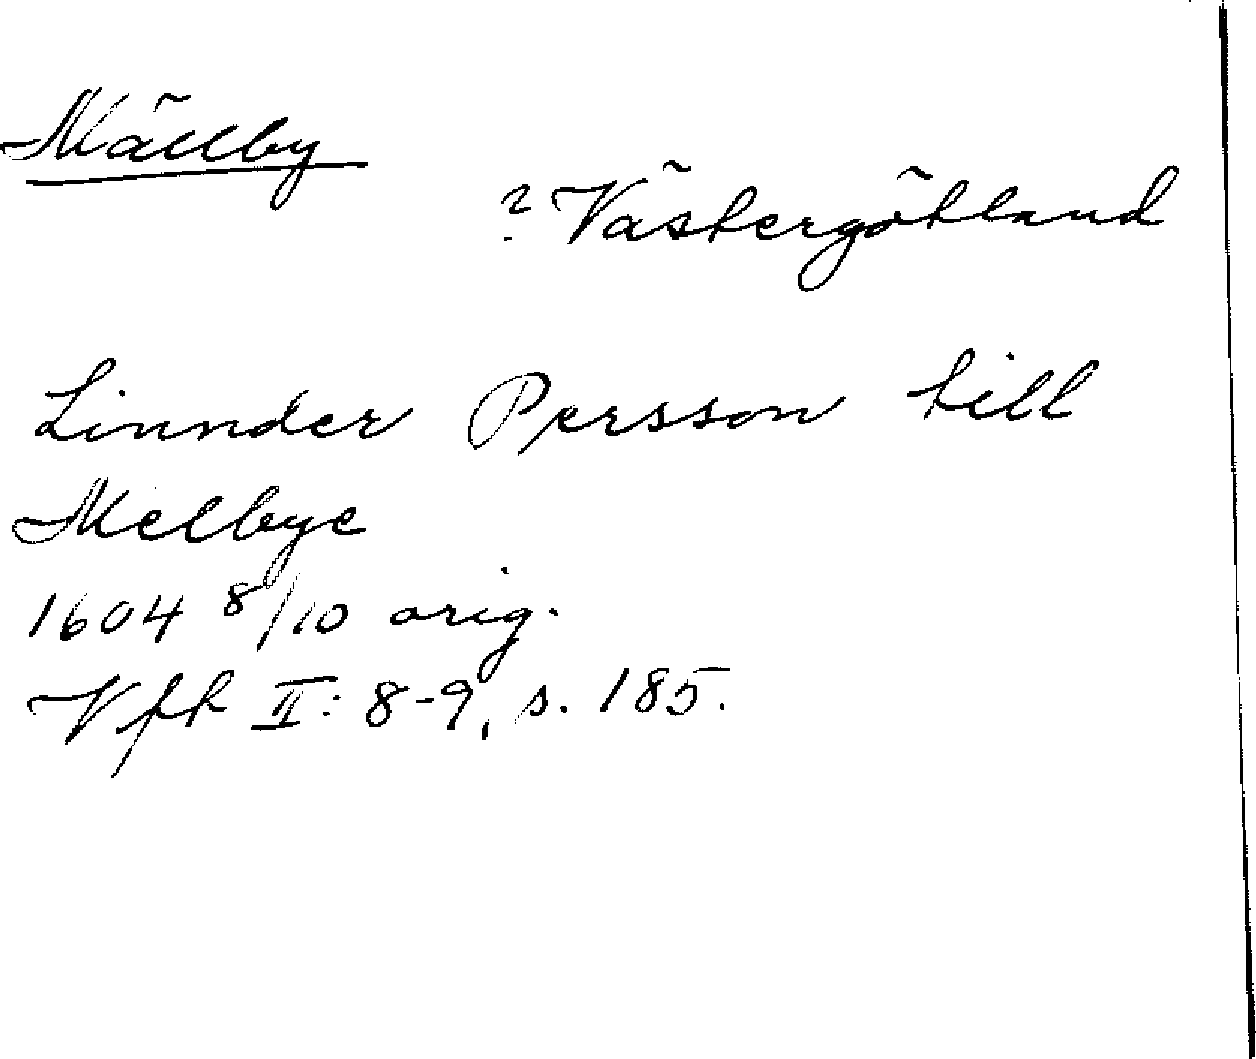 Mällby
? Västergötland
Linnder Persson till
Melbye
1604 8/10 orig.
Vft II: 8-9, s. 185.